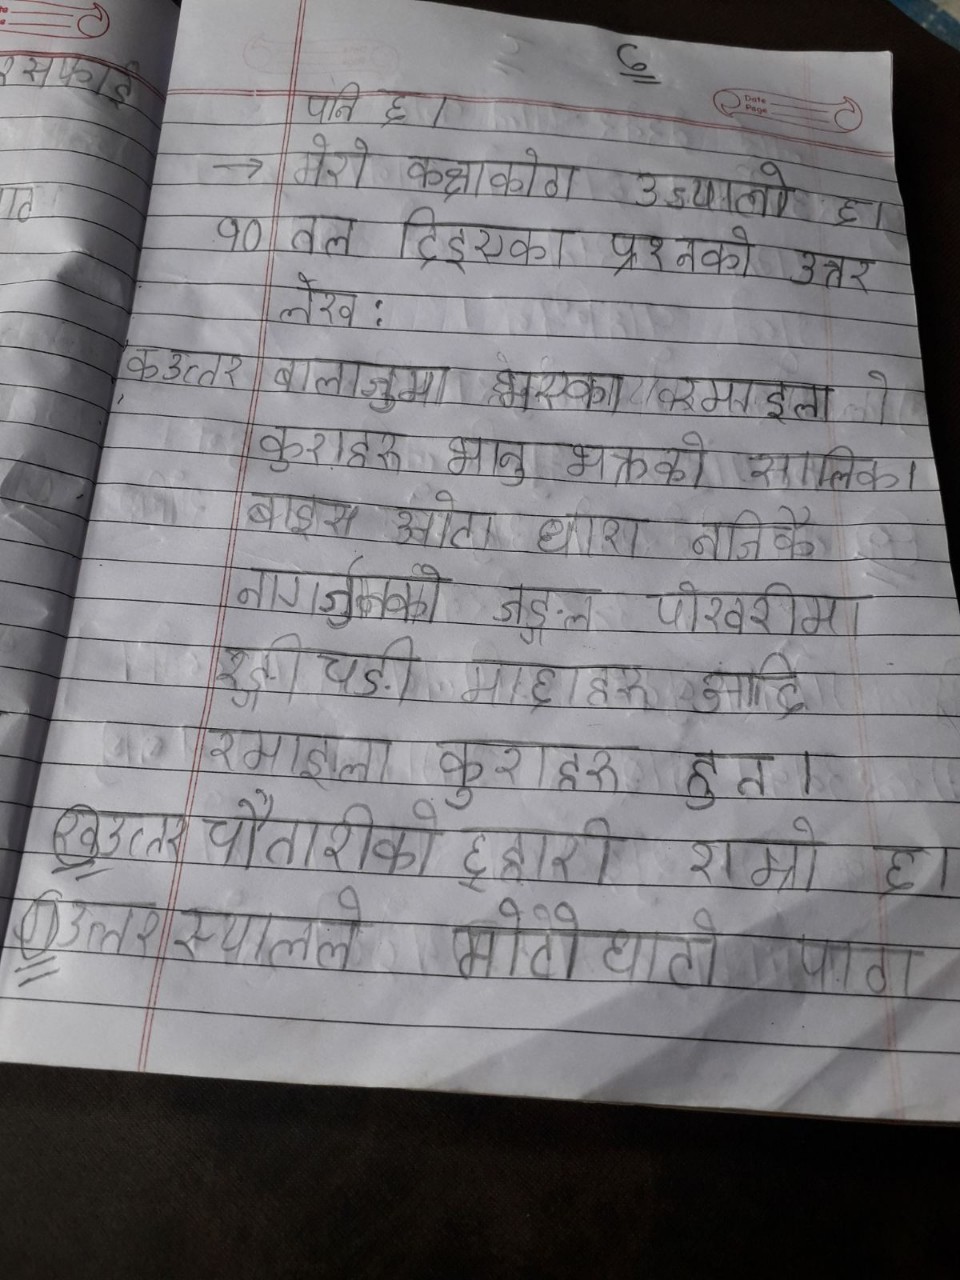 र सफाई
६
Date
Page
पनि छ ।
→ मेरो कक्षाकोठा उज्यालो छ ।
१० तल दिइएका प्रश्नको उत्तर
लेख :
क उत्तर बालाजुमा भएका रमाइला
कुराहरु भानु भक्तको सालिक ।
बाइस ओटा धारा नजिकै
नागार्जुनको जङ्गल पोखरीमा
रङ्गी चङ्गी माछाहरु आदि
रमाइला कुराहरु हुन ।
ख उत्तर चौतारीको छहारी राम्रो छ ।
ग उत्तर स्यालले मोटो घाटो पाठा